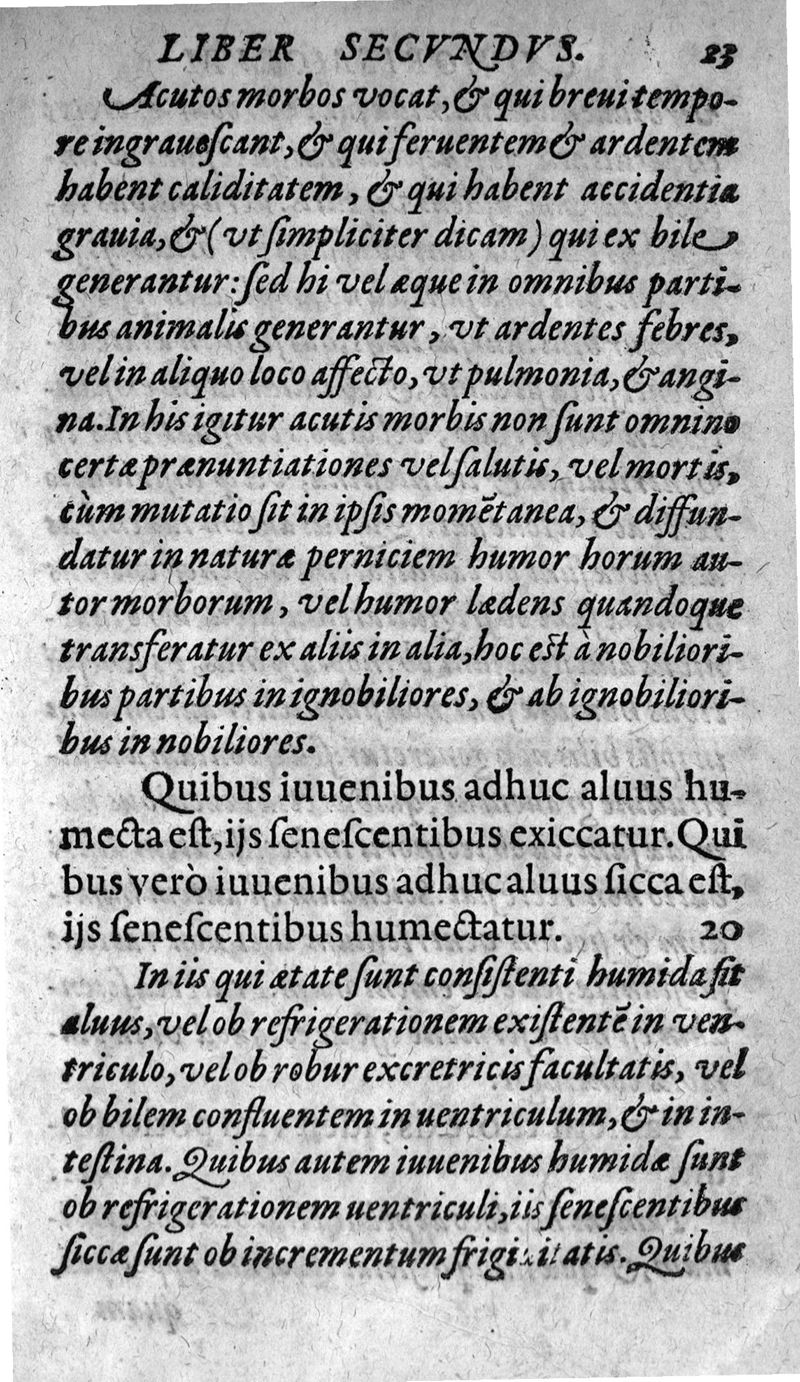 LIBER SECVNDVS. 23
Acutos morbos vocat, & qui breui tempo-
re ingrauescant, & qui feruentem & ardentem
habent caliditatem, & qui habent accidentia
grauia, & (vt simpliciter dicam) qui ex bile
generantur: sed hi vel æque in omnibus parti-
bus animalis generantur, vt ardentes febres,
vel in aliquo loco affecto, vt pulmonia, & angi-
na. In his igitur acutis morbis non sunt omnino
certæ prænuntiationes vel salutis, vel mortis,
cùm mutatio sit in ipsis momẽtanea, & diffun-
datur in naturæ perniciem humor horum au-
tor morborum, vel humor lædens quandoque
transferatur ex aliis in alia, hoc est à nobiliori-
bus partibus in ignobiliores, & ab ignobiliori-
bus in nobiliores.
Quibus iuuenibus adhuc aluus hu-
mecta est, ijs senescentibus exiccatur. Qui
bus verò iuuenibus adhuc aluus sicca est,
ijs senescentibus humectatur. 20
In iis qui ætate sunt consistenti humida sit
aluus, vel ob refrigerationem existentẽ in ven-
triculo, vel ob robur excretricis facultatis, vel
ob bilem confluentem in uentriculum, & in in-
testina. Quibus autem iuuenibus humidæ sunt
ob refrigerationem uentriculi, iis senescentibus
siccæ sunt ob incrementum frigiditatis. Quibus